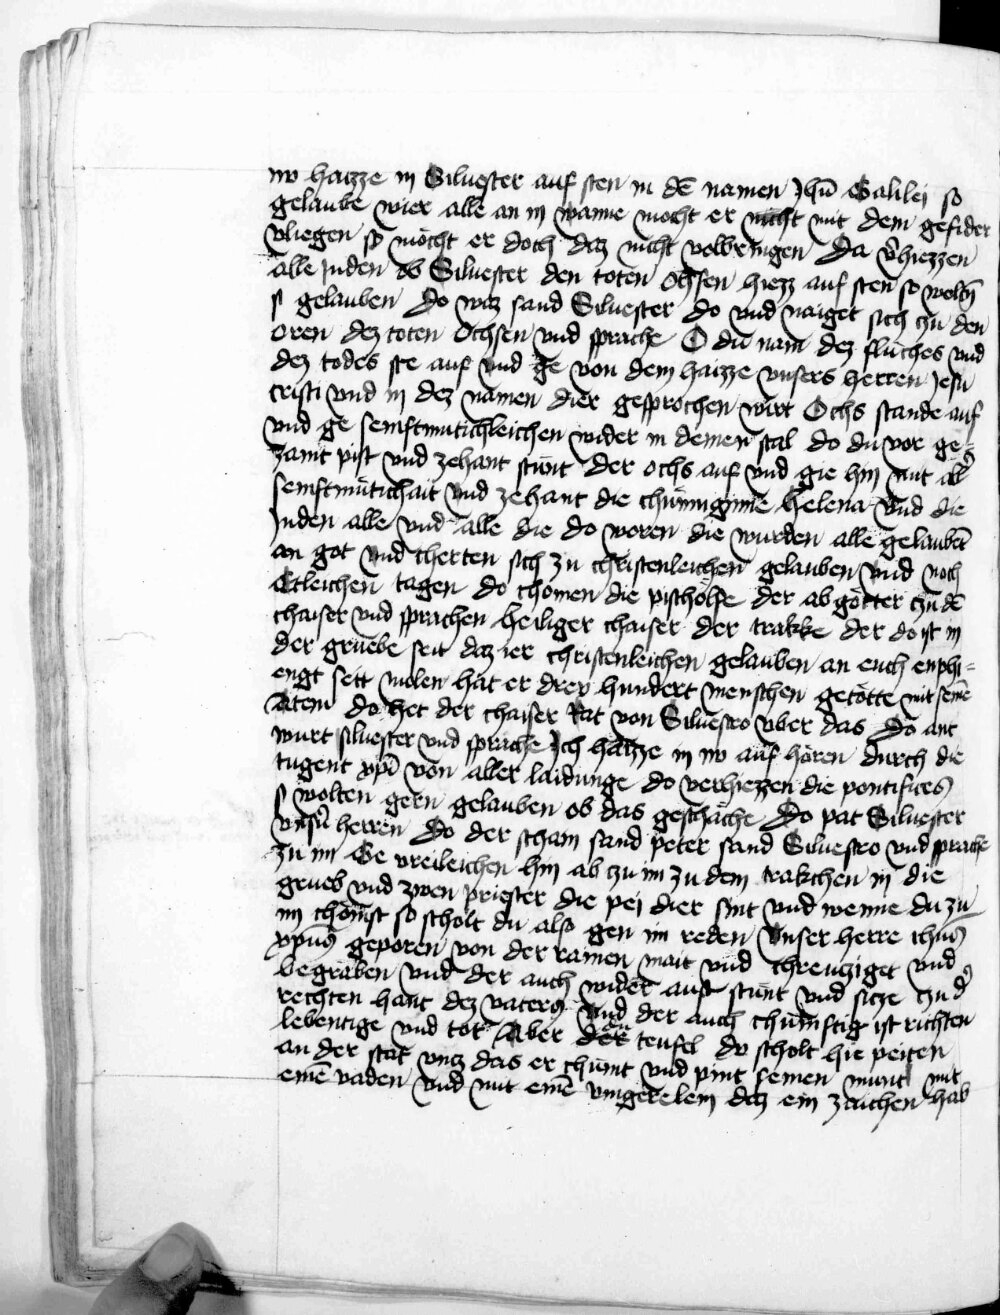 nv haizze in Siluester auf sten in dē namen Jhū Galilej so
gelaube wier alle an in wanne mocht er nicht mit dem gefider
vliegen so möcht er doch daz nicht volbringen Da v̾hiezzen
alle Juden ob Siluester den toten Ochsen hiezz auf sten so woltn̄
s gelauben Do waz sand Siluester do vnd naiget sich czu den
oren dez toten Ochsen vnd sprache O du nam dez fluches vnd
dez todes ste auf vnd ge von dem haizze vnsers herren Jesu
cristi vnd in dez namen dier gesprochen wirt Ochs stande auf
vnd ge semftmutichleichen wider in deinen stal do du vor ge=
zamt pist vnd zehant stŭnt der ochs auf vnd gie hin mit all̾
semftmütichait vnd zehant die chŭnniginne helena vnd die
Juden alle vnd alle die do woren die wurden alle gelaubēt
an got vnd cherten sich zu christenleichen gelauben vnd noch
Etleichen tagen do chomen die pischölfe der abgötter czu dē
chaiser vnd sprachen heiliger chaiser der trakke der do ist in
der gruebe seit daz ier christenleichen gelauben an euch enphi=
engt seit molen hat er drey hundert menschen getötte mit seinē
Atem do het der chaiser Rat von Siluestro vber das do ant
wurt siluester vnd sprache Ich haizze in nv auf hören durch die
tugent xp̄i von aller laidunge do verhiezzen die pontifices
s wolten gern gelauben ob das geschäche Do pat Siluester
vnsn̄ herren Do der scham sand peter sand Siluestro vnd sprache
zu im Ge vreileichen hin ab czu im zu dem trakchen in die
grueb vnd zwen priester die pei dier sint vnd wenne du zu
im chömst so scholt du also gen im reden vnser herre ihūs
xp̄us geporen von der rainen mait vnd chreucziget vnd
begraben vnd der auch wider auf stunt vnd sicze czu d̾
rechten hant dez vaters vnd der auch chŭmftig ist richten
lebentige vnd tot Aber der teufel dv scholt hie peiten
an der stat vncz das er chŭmt vnd pint seinen munt mit
einē vaden vnd mit einē vingerelein daz ein zaichen hab